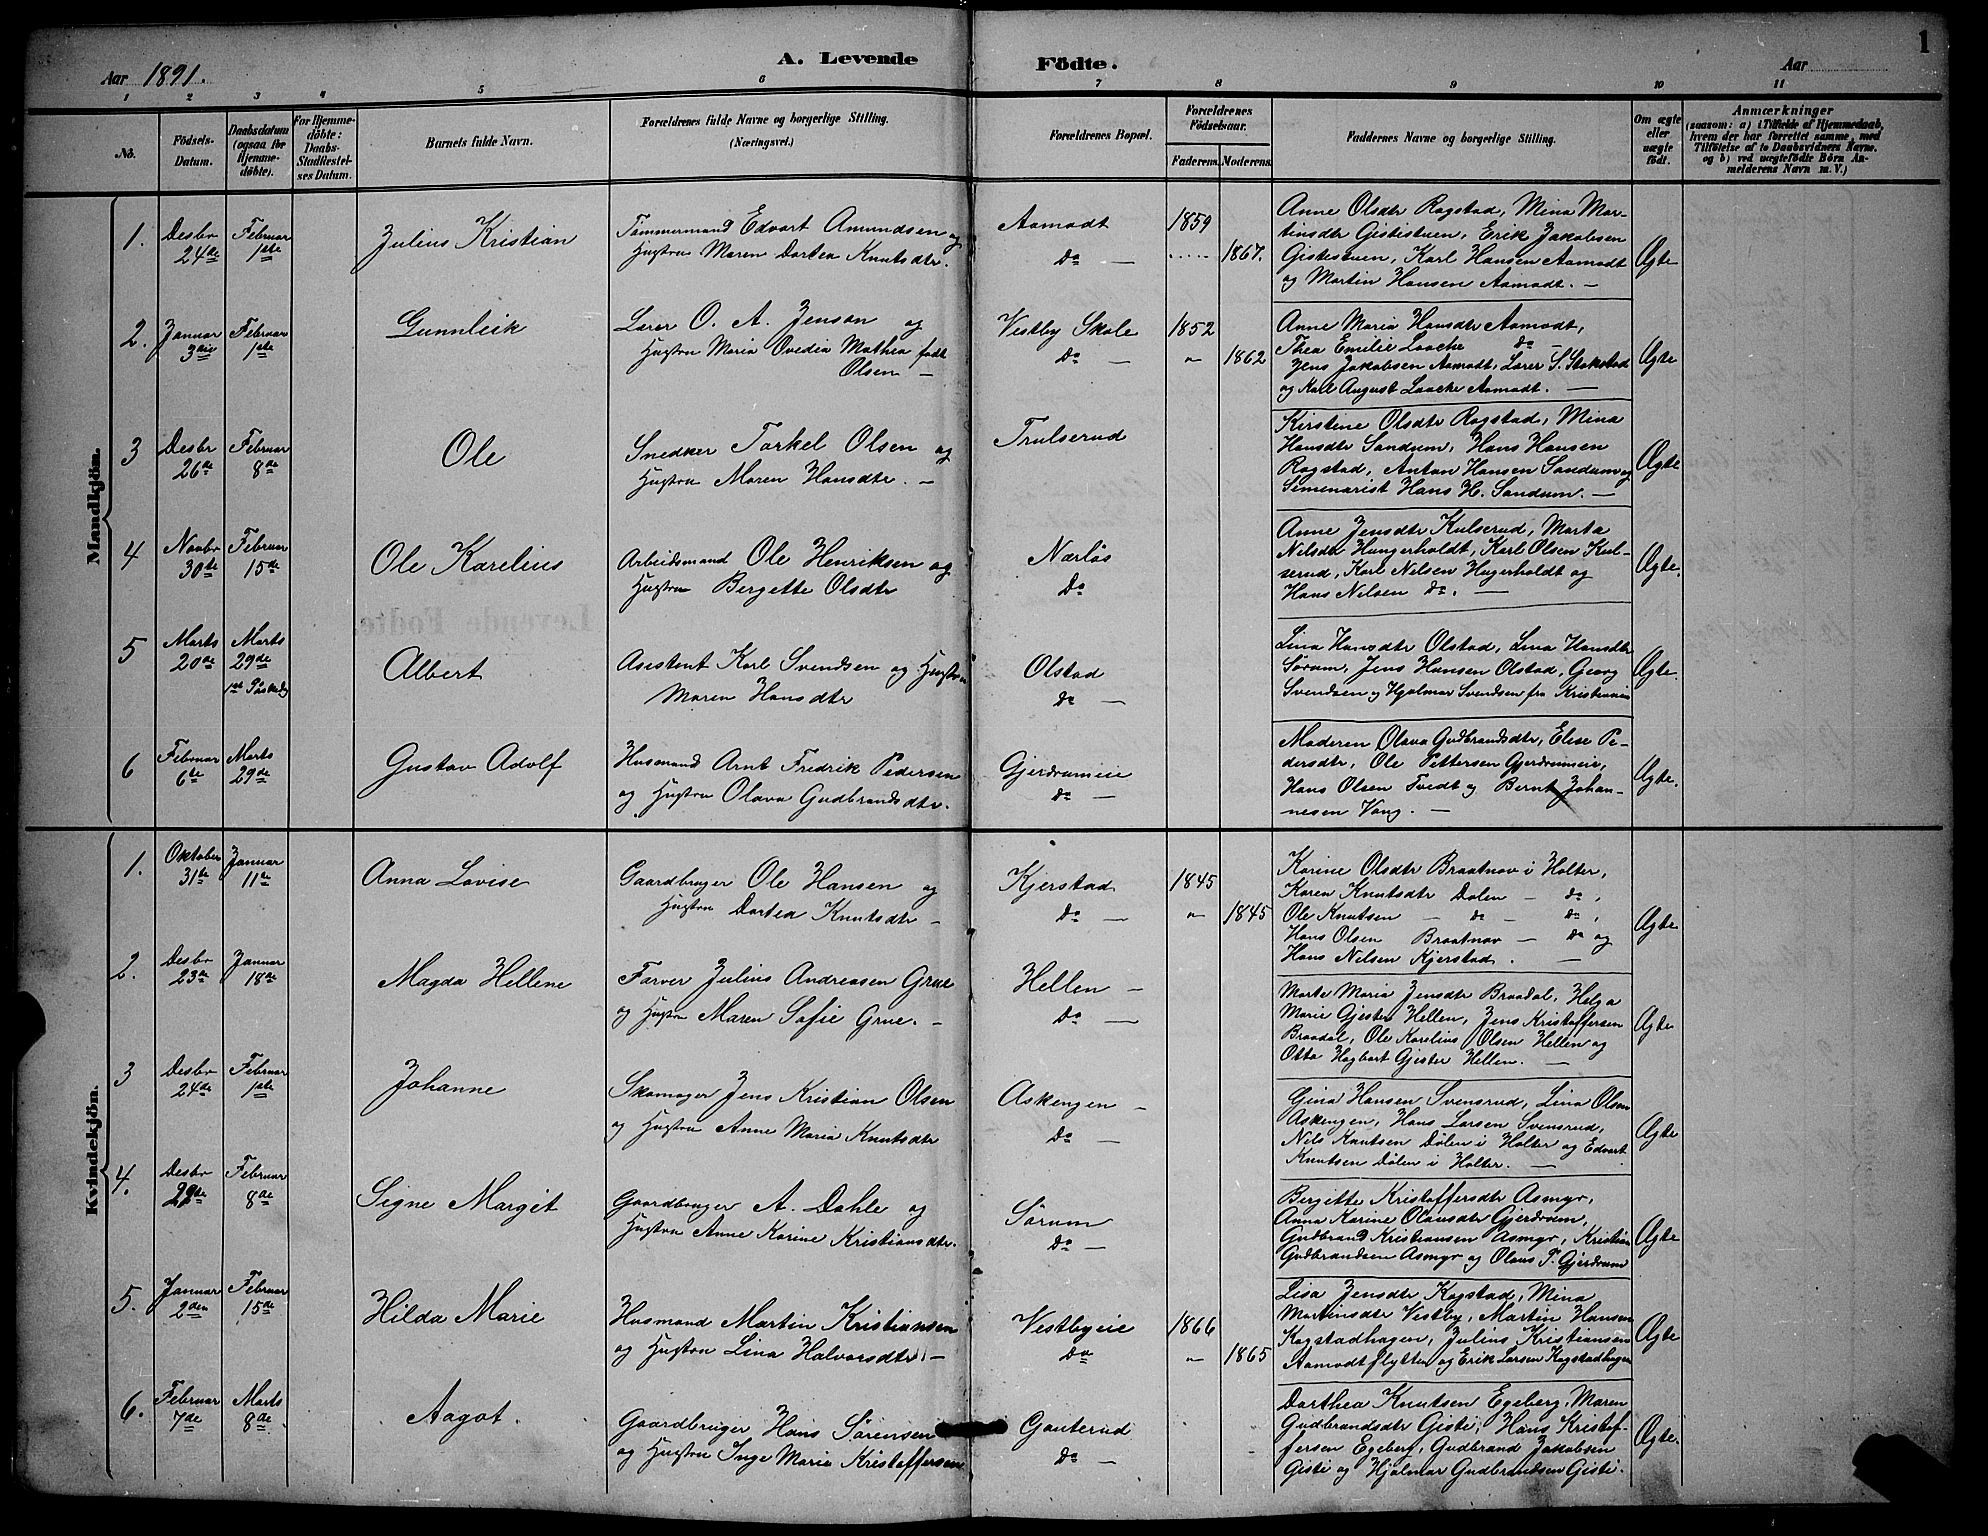 1
Aar 1891.
A. Levende Födte.
Aar
1 2 3 4 5 6 7 8 9 10 11
No.
Födsels-
Datum.
Daabsdatum
(ogsaa for
Hjemme-
döbte).
For Hjemme-
döbte:
Daabs-
Stadfæstel-
ses Datum.
Barnets fulde Navn.
Forældrenes fulde Navne og borgerlige Stilling.
(Næringsvei.)
Forældrenes Bopæl.
Forældrenes
Födselsaar.
Faderens. Moderens.
Faddernes Navne og borgerlige Stilling.
Om ægte
eller
uægte
födt.
Anmærkninger
(saasom: a) i Tilfælde af Hjemmedaab,
hvem der har forrettet samme, med
Tilföielse af to Daabsvidners Navne.
og b) ved uægtefödte Börn An-
melderens Navn m. V.)
Mandkjön.
1.
Desbr
24de
Februar
1ste
Julius Kristian
Tømmermand Edvart Amundsen og
Hustru Maren Dortea Knutsdtr.
Aamodt
Do —
1859
1867.
Anne Olsdtr Ragstad, Mina Mar-
tinsdtr Gistestuen, Erik Jakobsen
Gistestuen, Karl Hansen Aamodt
og Martin Hansen Aamodt. —
Ægte
2.
Januar
3die
Februar
1ste
Gunnleik
Lærer O. A. Jenson og
Hustru Maria Ovedia Mathea født
Olsen —
Vestby Skole
Do —
1852
" 1862
Anne Maria Hansdtr Aamodt,
Thea Emilie Laache Do —
Jens Jakobsen Aamodt, Lærer S. Stokstad
og Karl August Laache Aamodt. —
Ægte
3
Desbr
26de
Februar
8de
Ole
Snedker Torkel Olsen og
Hustru Maren Hansdtr. —
Trulserud
Kirstine Olsdtr Ragstad, Mina
Hansdtr Sandum, Hans Hansen
Ragstad, Anton Hansen Sandum og
Semenarist Hans H. Sandum. —
Ægte
4
Novbr
30te
Februar
15de
Ole Karelius
Arbeidsmand Ole Henriksen og
Hustru Bergette Olsdtr
Nærløs
Do
Anne Jensdtr Kulserud, Marta
Nilsdtr Hungerholdt, Karl Olsen Kul-
serud, Karl Nilsen Hugerholdt og
Hans Nilsen Do. —
Ægte.
5
Marts
20de
Marts
29de
1ste Paaskedg
Albert
Asistent Karl Svendsen og Hustru
Maren Hansdtr
Olstad
Do —
Lina Hansdtr Olstad, Lina Hansdtr
Sørum, Jens Hansen Olstad, Georg
Svendsen og Hjalmar Svendsen fra Kristiania
Ægte.
6
Februar
6te
Marts
29de
Gustav Adolf
Husmand Arnt Fredrik Pedersen
og Hustru Olava Gudbrandsdtr.
Gjerdrumeie
Do —
Moderen Olava Gudbrandsdtr, Elise Pe-
dersdtr, Ole Pettersen Gjerdrumeie,
Hans Olsen Tvedt og Bernt Johan-
nesen Vang. —
Ægte.
Kvindekjön.
1.
Oktober
31te
Januar
11te
Anna Lovise
Gaardbruger Ole Hansen og
Hustru Dortea Knutsdtr —
Kjerstad
Do —
1845
" 1845
Karine Olsdtr Braatnav i Holter,
Karen Knutsdtr Dølen — do,
Ole Knutsen — Do — Do,
Hans Olsen Braatnav — Do og
Hans Nilsen Kjerstad. —
Ægte
2.
Desbr
23de
Januar
18de
Magda Hellene
Farver Julius Andreasen Grue
og Hustru Maren Sofie Grue. —
Hellen —
Do —
Marte Maria Jensdtr Braadal, Helga
Marie Gjester Hellen, Jens Kristoffersen
Braadal, Ole Karelius Olsen Hellen og
Otto Hagbart Gjester Hellen. —
Ægte
3
Desbr
24de
Februar
1ste
Johanne
Skomager Jens Kristian Olsen
og Hustru Anne Maria Knutsdtr
Askengen —
Do —
Gina Hansen Svensrud, Lina Olsen
Askengen, Hans Larsen Svensrud,
Nils Knutsen Dølen i Holter og Edvart
Knutsen Dølen i Holter. —
Ægte
4.
Desbr
29de
Februar
8de
Signe Margit
Gaardbruger A. Dahle og
Hustru Anne Karine Kristiansdtr.
Sørum
Do —
Bergitte Kristoffersdtr Asmyr,
Anna Karine Olausdtr Gjerdrum,
Gudbrand Kristiansen Asmyr, Kristian
Gudbrandsen Asmyr og Olaus P. Gjerdrum
Ægte
5.
Januar
2den
Februar
15de
Hilda Marie
Husmand Martin Kristiansen
og Hustru Lina Halvorsdtr. —
Vestbyeie
Do
1866
" 1865
Lisa Jensdtr Kogstad, Mina
Martinsdtr Vestby, Martin Hansen
Kogstadhagen, Julius Kristiansen
Aamodtflytten og Erik Larsen Kogstadhagen
Ægte
6.
Februar
7de
Marts
8de
Aagot.
Gaardbruger Hans Sørensen
og Hustru Inge Maria Kristoffersen
Gauterud
Do —
Dorthea Knutsen Egeberg, Maren
Gudbrandsdtr Gisti, Hans Kristof-
fersen Egeberf, Gudbrand Jakobsen
Gisti og Hjalmar Gudbrandsen Gisti.
Ægte.